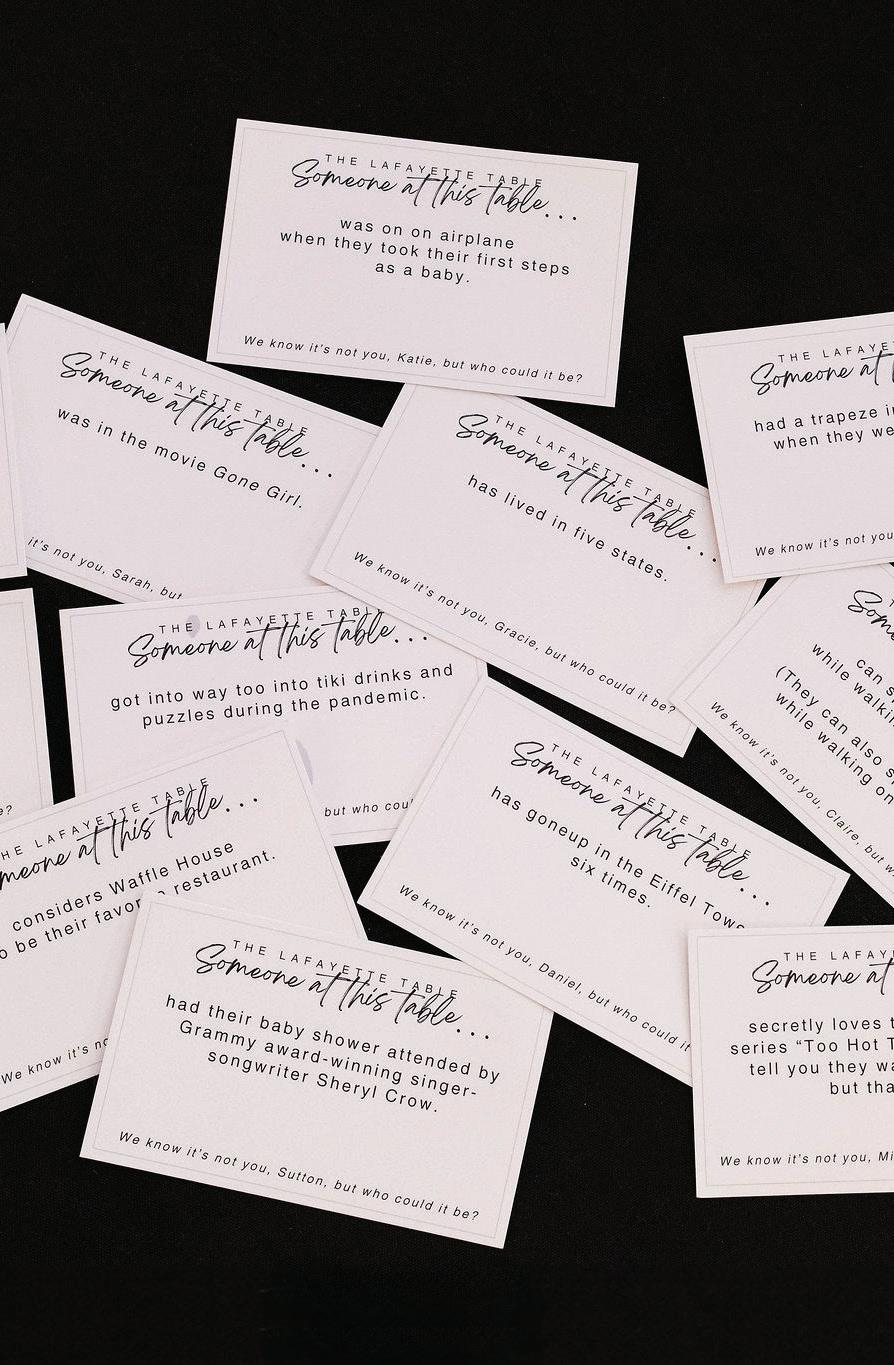 THE LAFAYETTE TABLE
Someone at this table...
was on on airplane
when they took their first steps
as a baby.
We know it's not you, Katie, but who could it be?
THE LAFAYETTE TABLE
Someone at this table...
was in the movie Gone Girl.
it's not you, Sarah, but
THE LAFAYETTE TABLE
Someone at this table...
has lived in five states.
We know it's not you, Gracie, but who could it be?
THE LAFAYE
Someone at
had a trapeze
when they we
We know it's not you
THE LAFAYETTE TABLE
Someone at this table...
got into way too into tiki drinks and
puzzles during the pandemic.
but who
can
while
(They can also
while walking on
We know it's not you, Claire, but
THE LAFAYETTE TABLE
Someone at this table...
has goneup in the Eiffel
six times.
We know it's not you, Daniel, but who could it
HE LAFAYETTE TABLE
meone at this table...
considers Waffle House
o be their restaurant.
We know it's
THE LAFAYETTE TABLE
Someone at this table...
had their baby shower attended by
Grammy award-winning singer-
songwriter Sheryl Crow.
We know it's not you, Sutton, but who could it be?
THE LAFAY
Someone at
secretly loves
series “Too Hot T
tell you they wa
but tha
We know it's not you, Mi